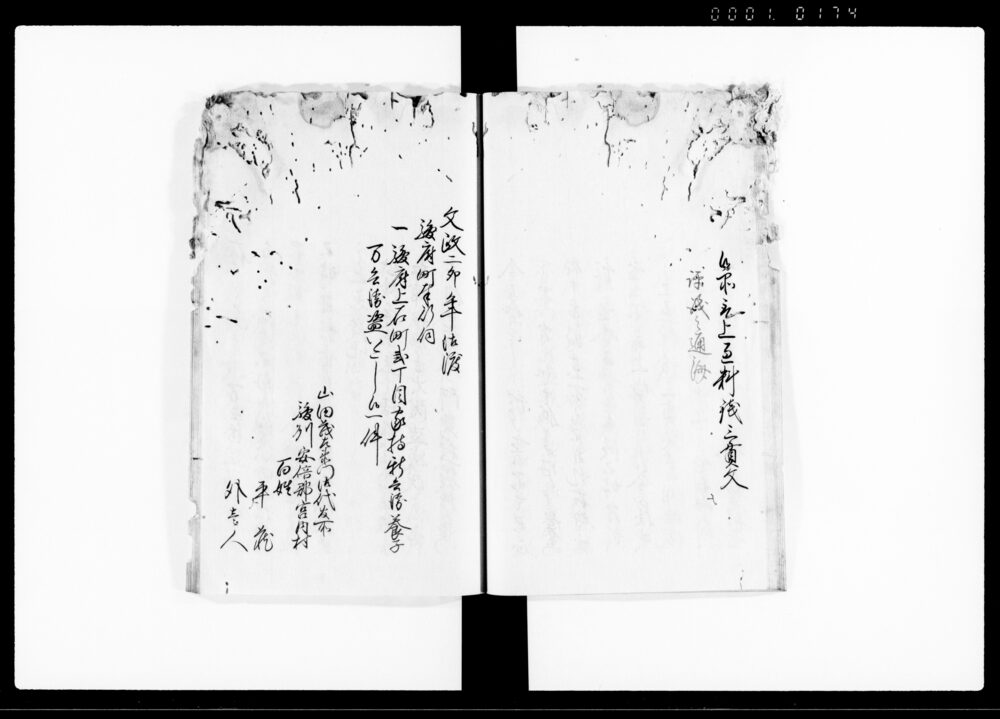 0001 0174
上過料銭三貫文
評議之通済
文政二卯年御渡
駿府町奉行伺
一駿府上石町弐丁目家持新兵衛養子
万兵衛盗いたし候一件
山田茂左衛門御代官所
駿州安倍郡宮内村
百姓
平蔵
外壱人